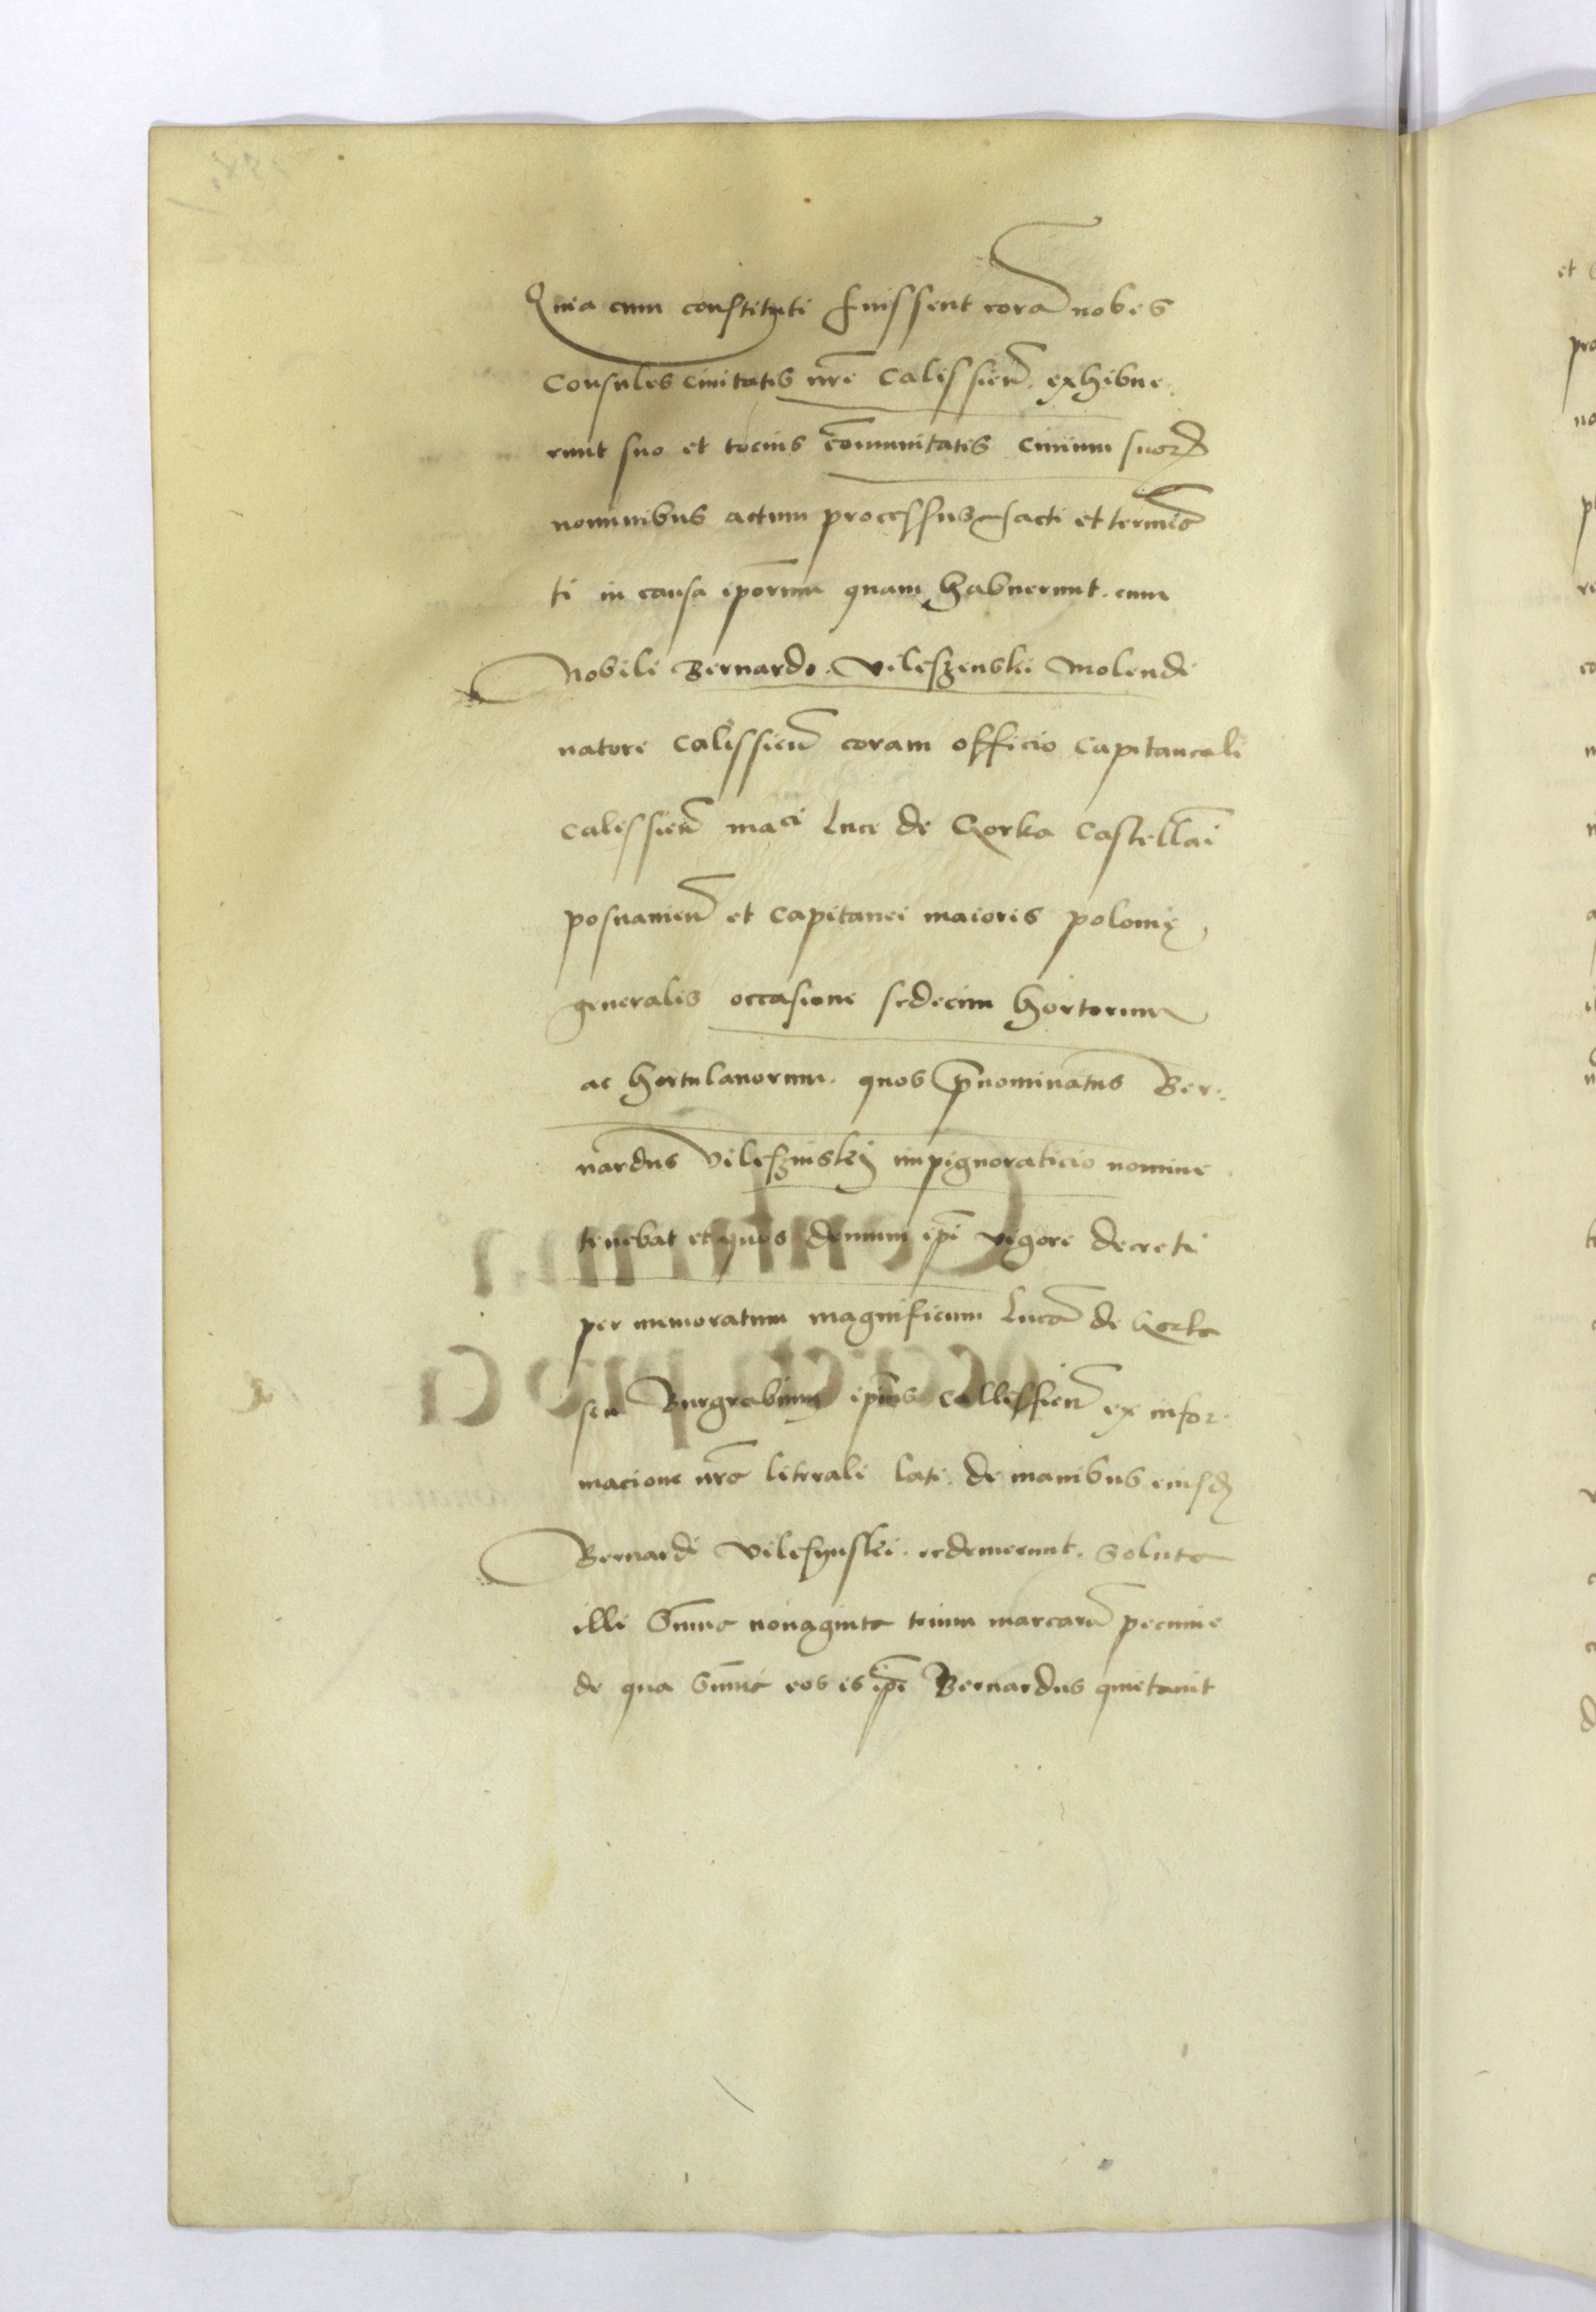 Quia cum constituti fuissent corā nobis
Consules Ciuitatis nrē Calissien̄. exhibue.
runt suo et tocius cōmunitatis Ciuium suoꝝ
nominibus actum processus facti et termīa
ti in causa ipōrum quam habuerunt. cum
Nobili Bernardo. Vileszenski Molendi
natore Calissien̄ coram officio Capitaneali
Calissien̄ maci Luce de Gorka Castellāi
posnanien̄ et Capitanei maioris polonię
generalis occasione sedecim hortorum
ac hortulanorum. quos p̄nominatus Ber.
nardus Vileszinskij impignoraticio nomine
tenebat et quos demum ipī vigore decreti
per memoratum magnificum Lucā de Gorka
seu Burgrabium ipīus Callissien̄ ex infor.
macione nrā literali lati. de manibus eiusdꝫ
Bernardi Vilesynski. redemerunt. Soluta
illi Sūma nonaginta trium marcarū pecunie
de qua Sūma eos is ipē Bernardus quietauit